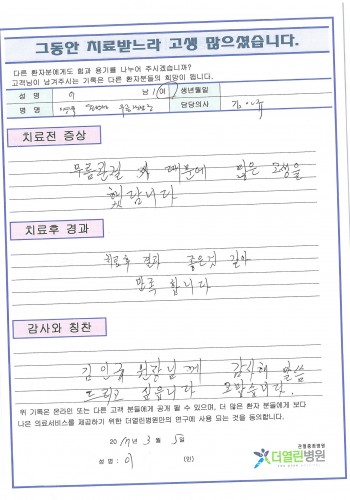 그동안 치료받느라 고생 많으셨습니다.
다른 환자분에게도 힘과 용기를 나누어 주시겠습니까?
고객님이 남겨주시는 기록은 다른 환자분들의 희망이 됩니다.
성 명 이 남 / 여 생년월일
병 명 담당의사
치료전 증상
무릎관절 때문에 많은 고생을
했답니다
치료후 경과
치료후 결과 좋은것 같아
만족 합니다
감사와 칭찬
김민규 원장님께 감사해 말씀
드리고 싶습니다 고맙습니다.
위 기록은 온라인 또는 다른 고객 분들에게 공개 될 수 있으며, 더 많은 환자 분들에게 보다
나은 의료서비스를 제공하기 위한 더열린병원만의 연구에 사용 되는 것을 동의합니다.
2017년 3월 5일
성 명 : 이 (인)
관절중점병원
더열린병원